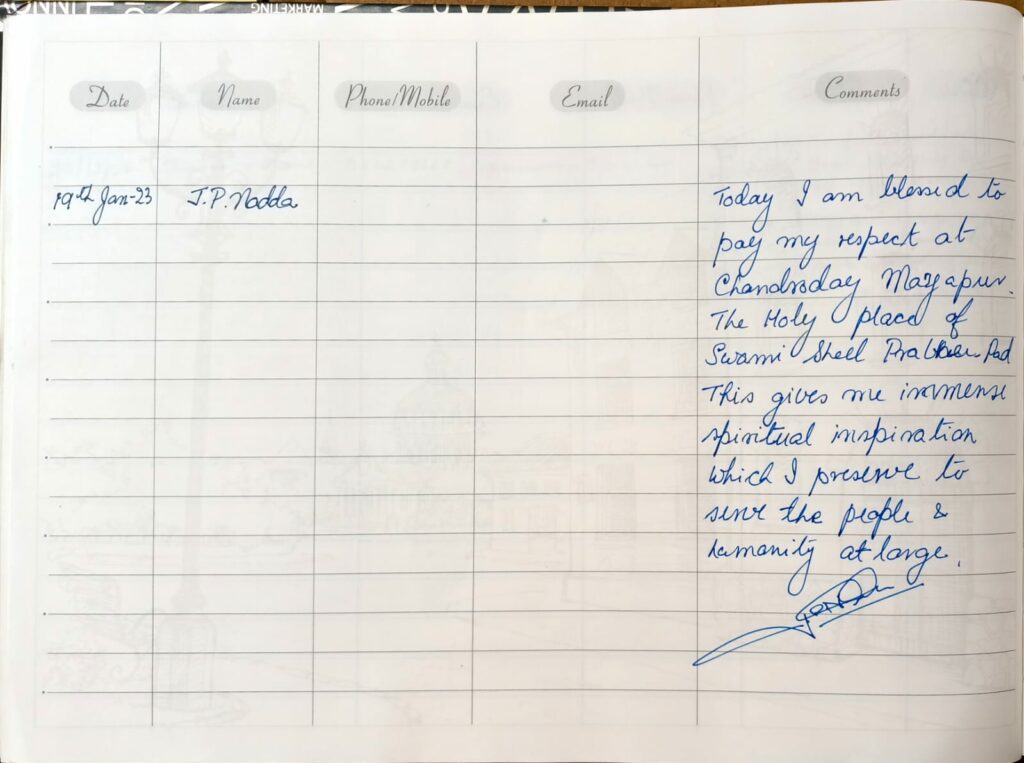 MARKETING
Date Name Phone/Mobile Email Comments
19th Jan-23 J.P. Nadda
Today I am blessed to
pay my respect at
Chandroday Mayapur.
The Holy place of
Swami Sheel Prabhu Pad
This gives me immense
spiritual inspiration
which I preserve to
serve the people &
humanity at large.